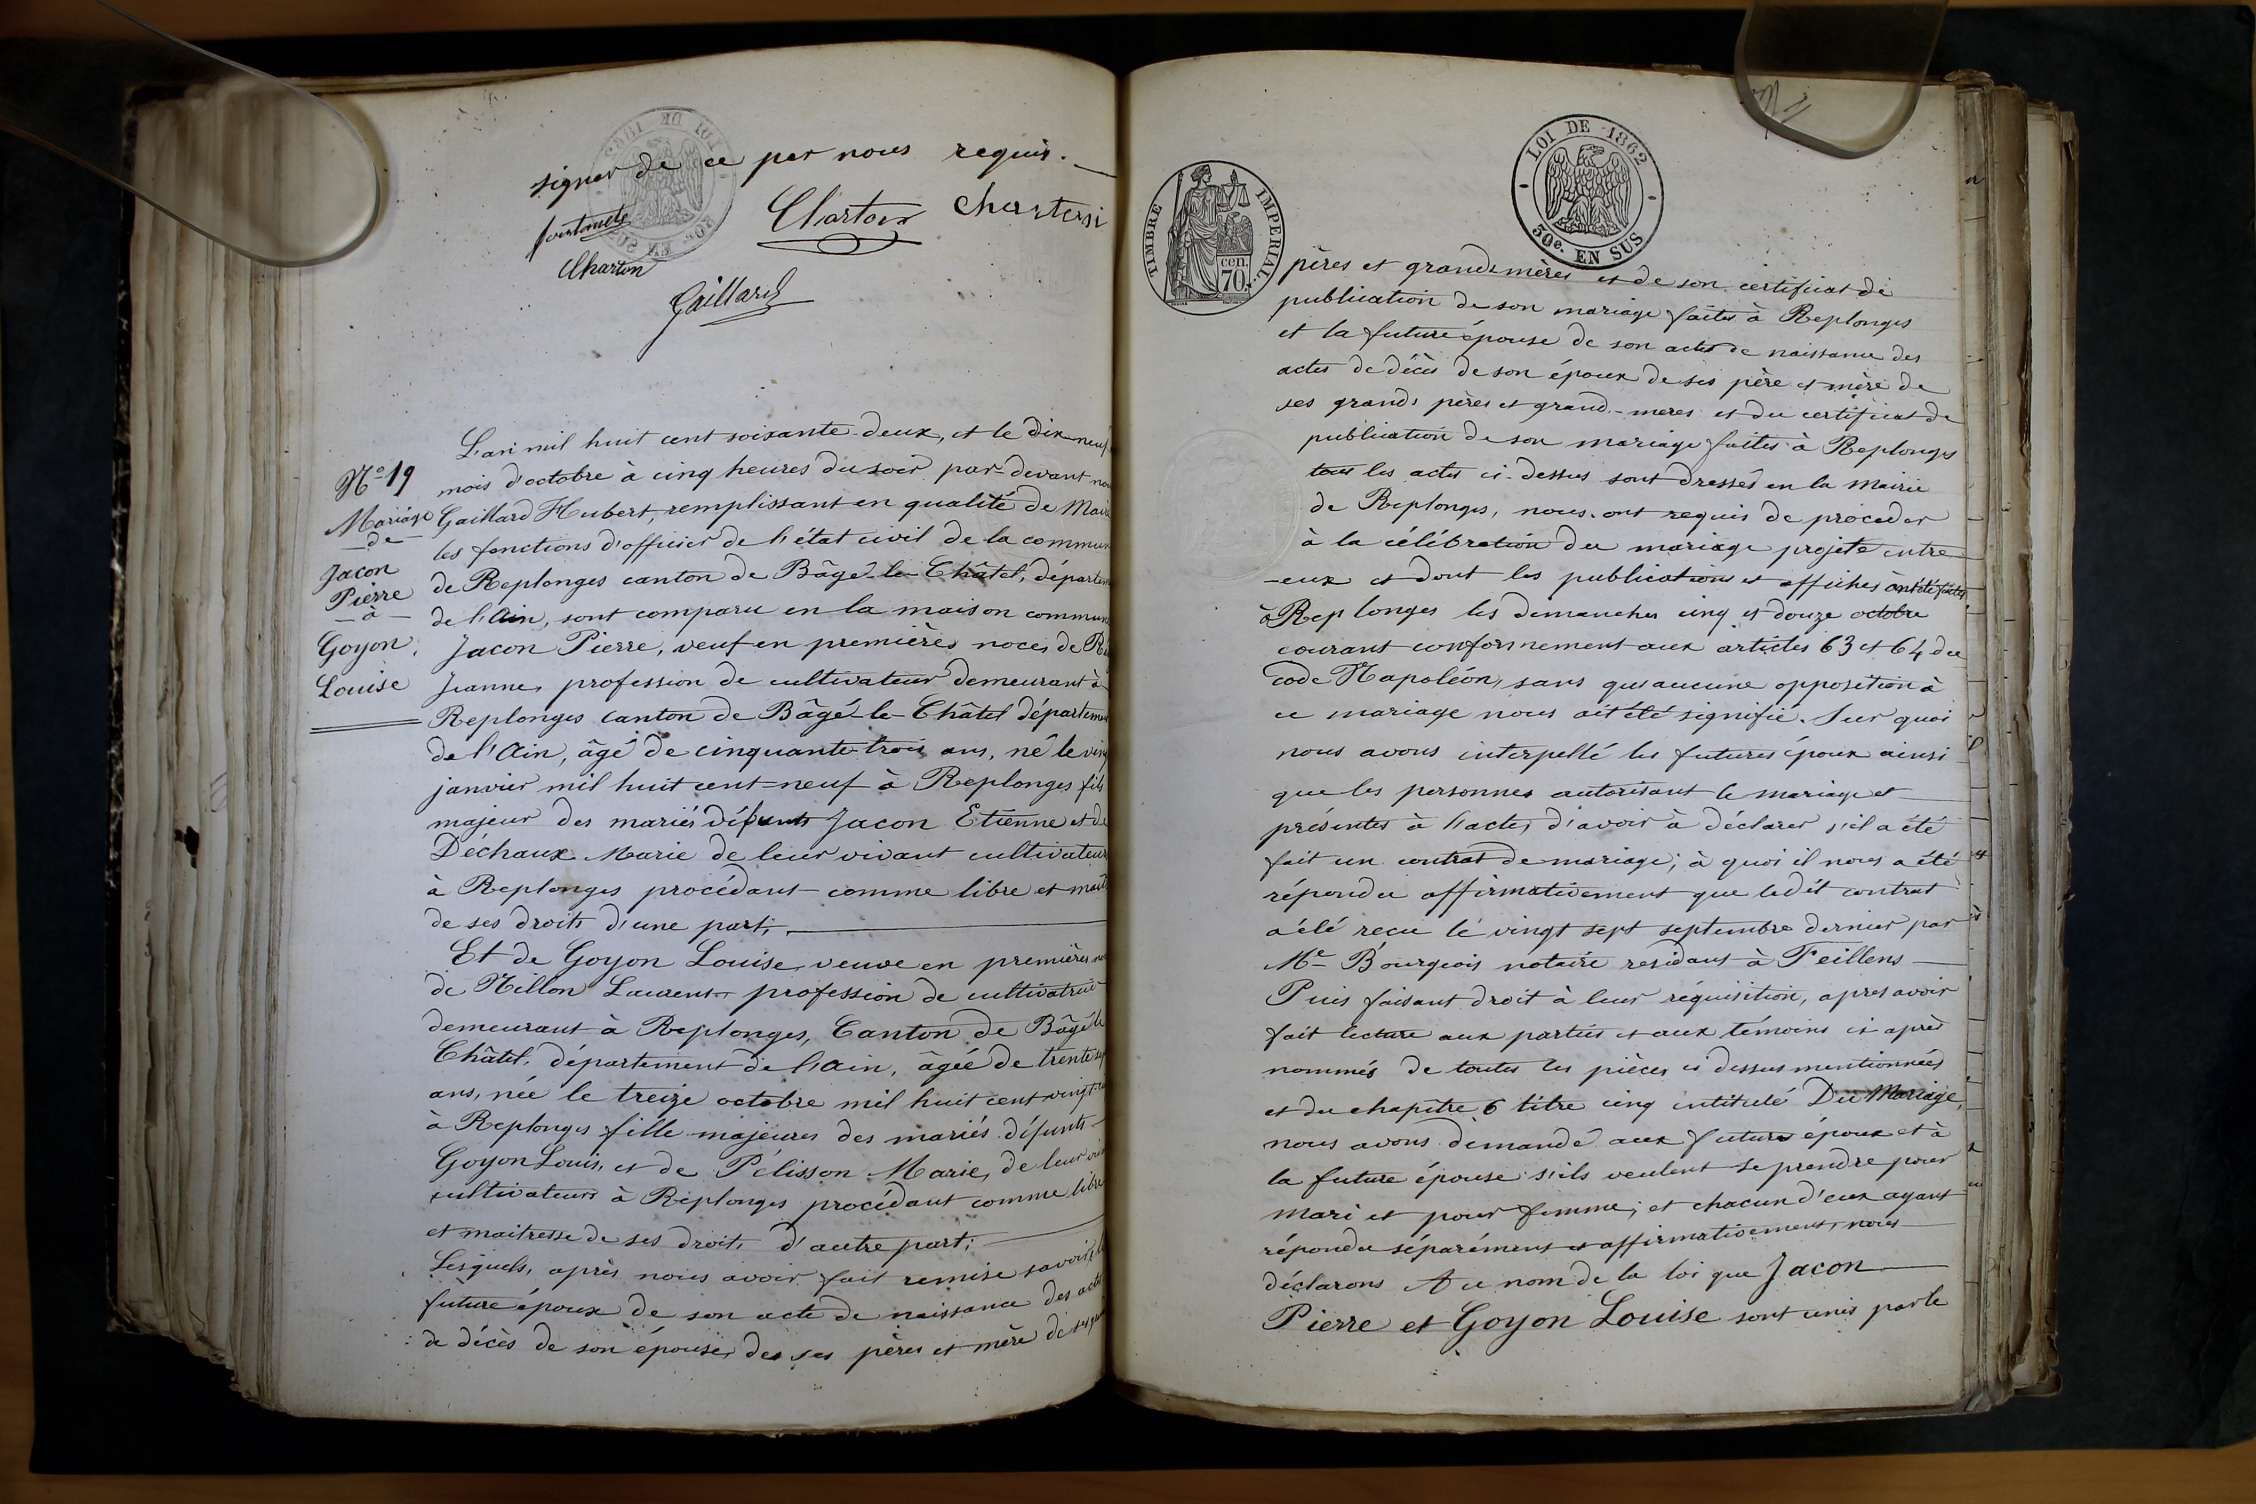 signer de ce par nous requis.
Charton Charton
Charton
Gaillard
L'an mil huit cent soixante-deux, et le dix neuf
N° 19
mois d'octobre à cinq heures du soir par-devant nous
Mariage
Gaillard Hubert, remplissant en qualité de Maire
de
les fonctions d'officier de l'état civil de la commun
Jacon
de Replonges canton de Bâgé-le-Châtel, départem
Pierre
à
de l'Ain, sont comparu en la maison commun
Goyon
Jacon Pierre, veuf en premières noces de
Louise
Jeanne, profession de cultivateur demeurant à
Replonges canton de Bâgé-le-Châtel département
de l'Ain, âgé de cinquante-trois ans, né le vin
janvier mil huit cent-neuf à Replonges fils
majeur des mariés défunts Jacon Etienne et de
Déchaux Marie de leur vivant cultivateurs
à Replonges procédant comme libre et maît
de ses droits d'une part,
Et de Goyon Louise, veuve en premières no
de Nillon Laurent profession de cultivatrice
demeurant à Replonges, Canton de Bâgé le
Châtel, département de l'Ain, âgée de trente sep
ans, née le treize octobre mil huit cent vingt
à Replonges fille majeures des mariés défunts
Goyon Louis, et de Pélisson Marie, de leur viv
cultivateurs à Replonges procédant comme libre
et maitresse de ses droits d'autre part;
Lesquels, après nous avoir fait remise savoir, le
future époux de son acte de naissance des actes
de décès de son épouse, des ses pères et mère de ses gran
LOI DE 1862
50c. EN SUS
TIMBRE IMPERIAL
70 cen.
pères et grands mères et de son certificat de
publication de son mariage faites à Replonges
et la future épouse de son acte de naissance des
actes de décès de son époux de ses père et mère de
ses grands pères et grand-meres et du certificat de
publication de son mariage faites à Replonges
tous les actes ci-dessus sont dressés en la Mairie
de Replonges, nous ont requis de procéder
à la célébration du mariage projeté entre
eux et dont les publications et affiches ont été faites
à Replonges les dimanches cinq et douze octobre
courant conformement aux articles 63 et 64 du
code Napoléon, sans qu'aucune opposition à
ce mariage nous ait été signifié. Sur quoi
nous avons interpellé les futures époux ainsi
que les personnes autorisant le mariage et
présentes à l'acte, d'avoir à déclarer s'il a été
fait un contrat de mariage; à quoi il nous a été
répondu affirmativement que ledit contrat
a été reçu le vingt sept septembre dernier par
Me Bourgeois notaire residant à Feillens
Puis faisant droit à leur réquisition, apres avoir
fait lecture aux parties et aux témoins ci après
nommés de toutes les pièces ci dessus mentionnées
et du chapitre 6 titre cinq intitulé Du Mariage,
nous avons demandé aux futurs époux et à
la future épouse s'ils veulent se prendre pour
mari et pour femme; et chacun d'eux ayant
répondu séparément et affirmativement, nous
déclarons Au nom de la loi que Jacon
Pierre et Goyon Louise sont unis par le